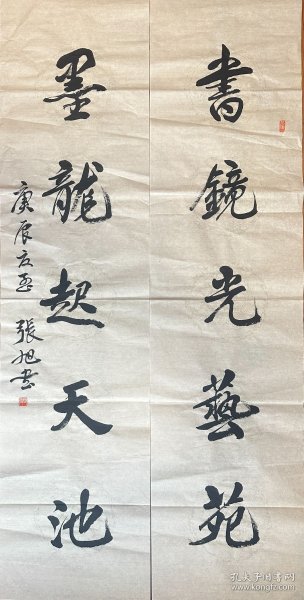 書鏡光藝苑
墨龍起天池
庚辰立至
張旭書
孔夫子旧书网
www.kongfz.com